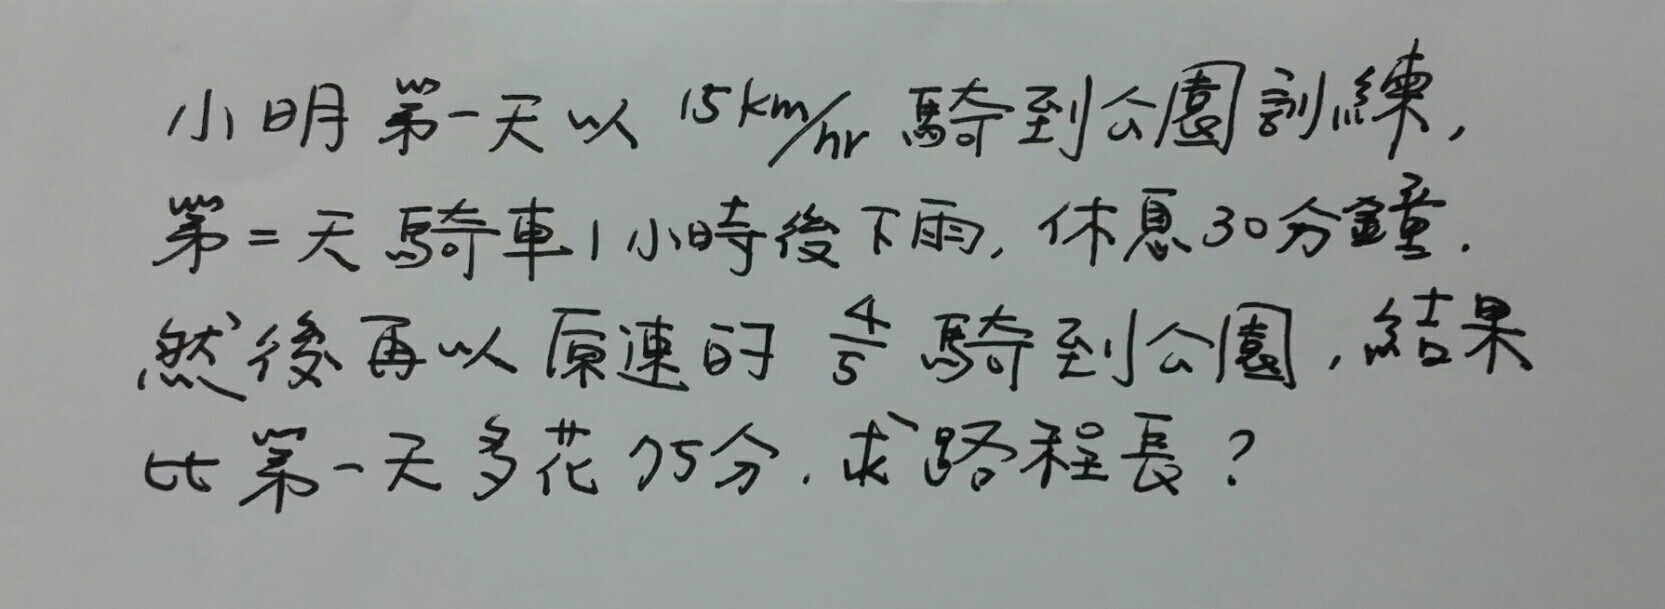 小明第一天以 15km/hr 騎到公園訓練,
第二天騎車1小時後下雨, 休息30分鐘.
然後再以原速的 4/5 騎到公園, 結果
比第一天多花75分. 求路程長?